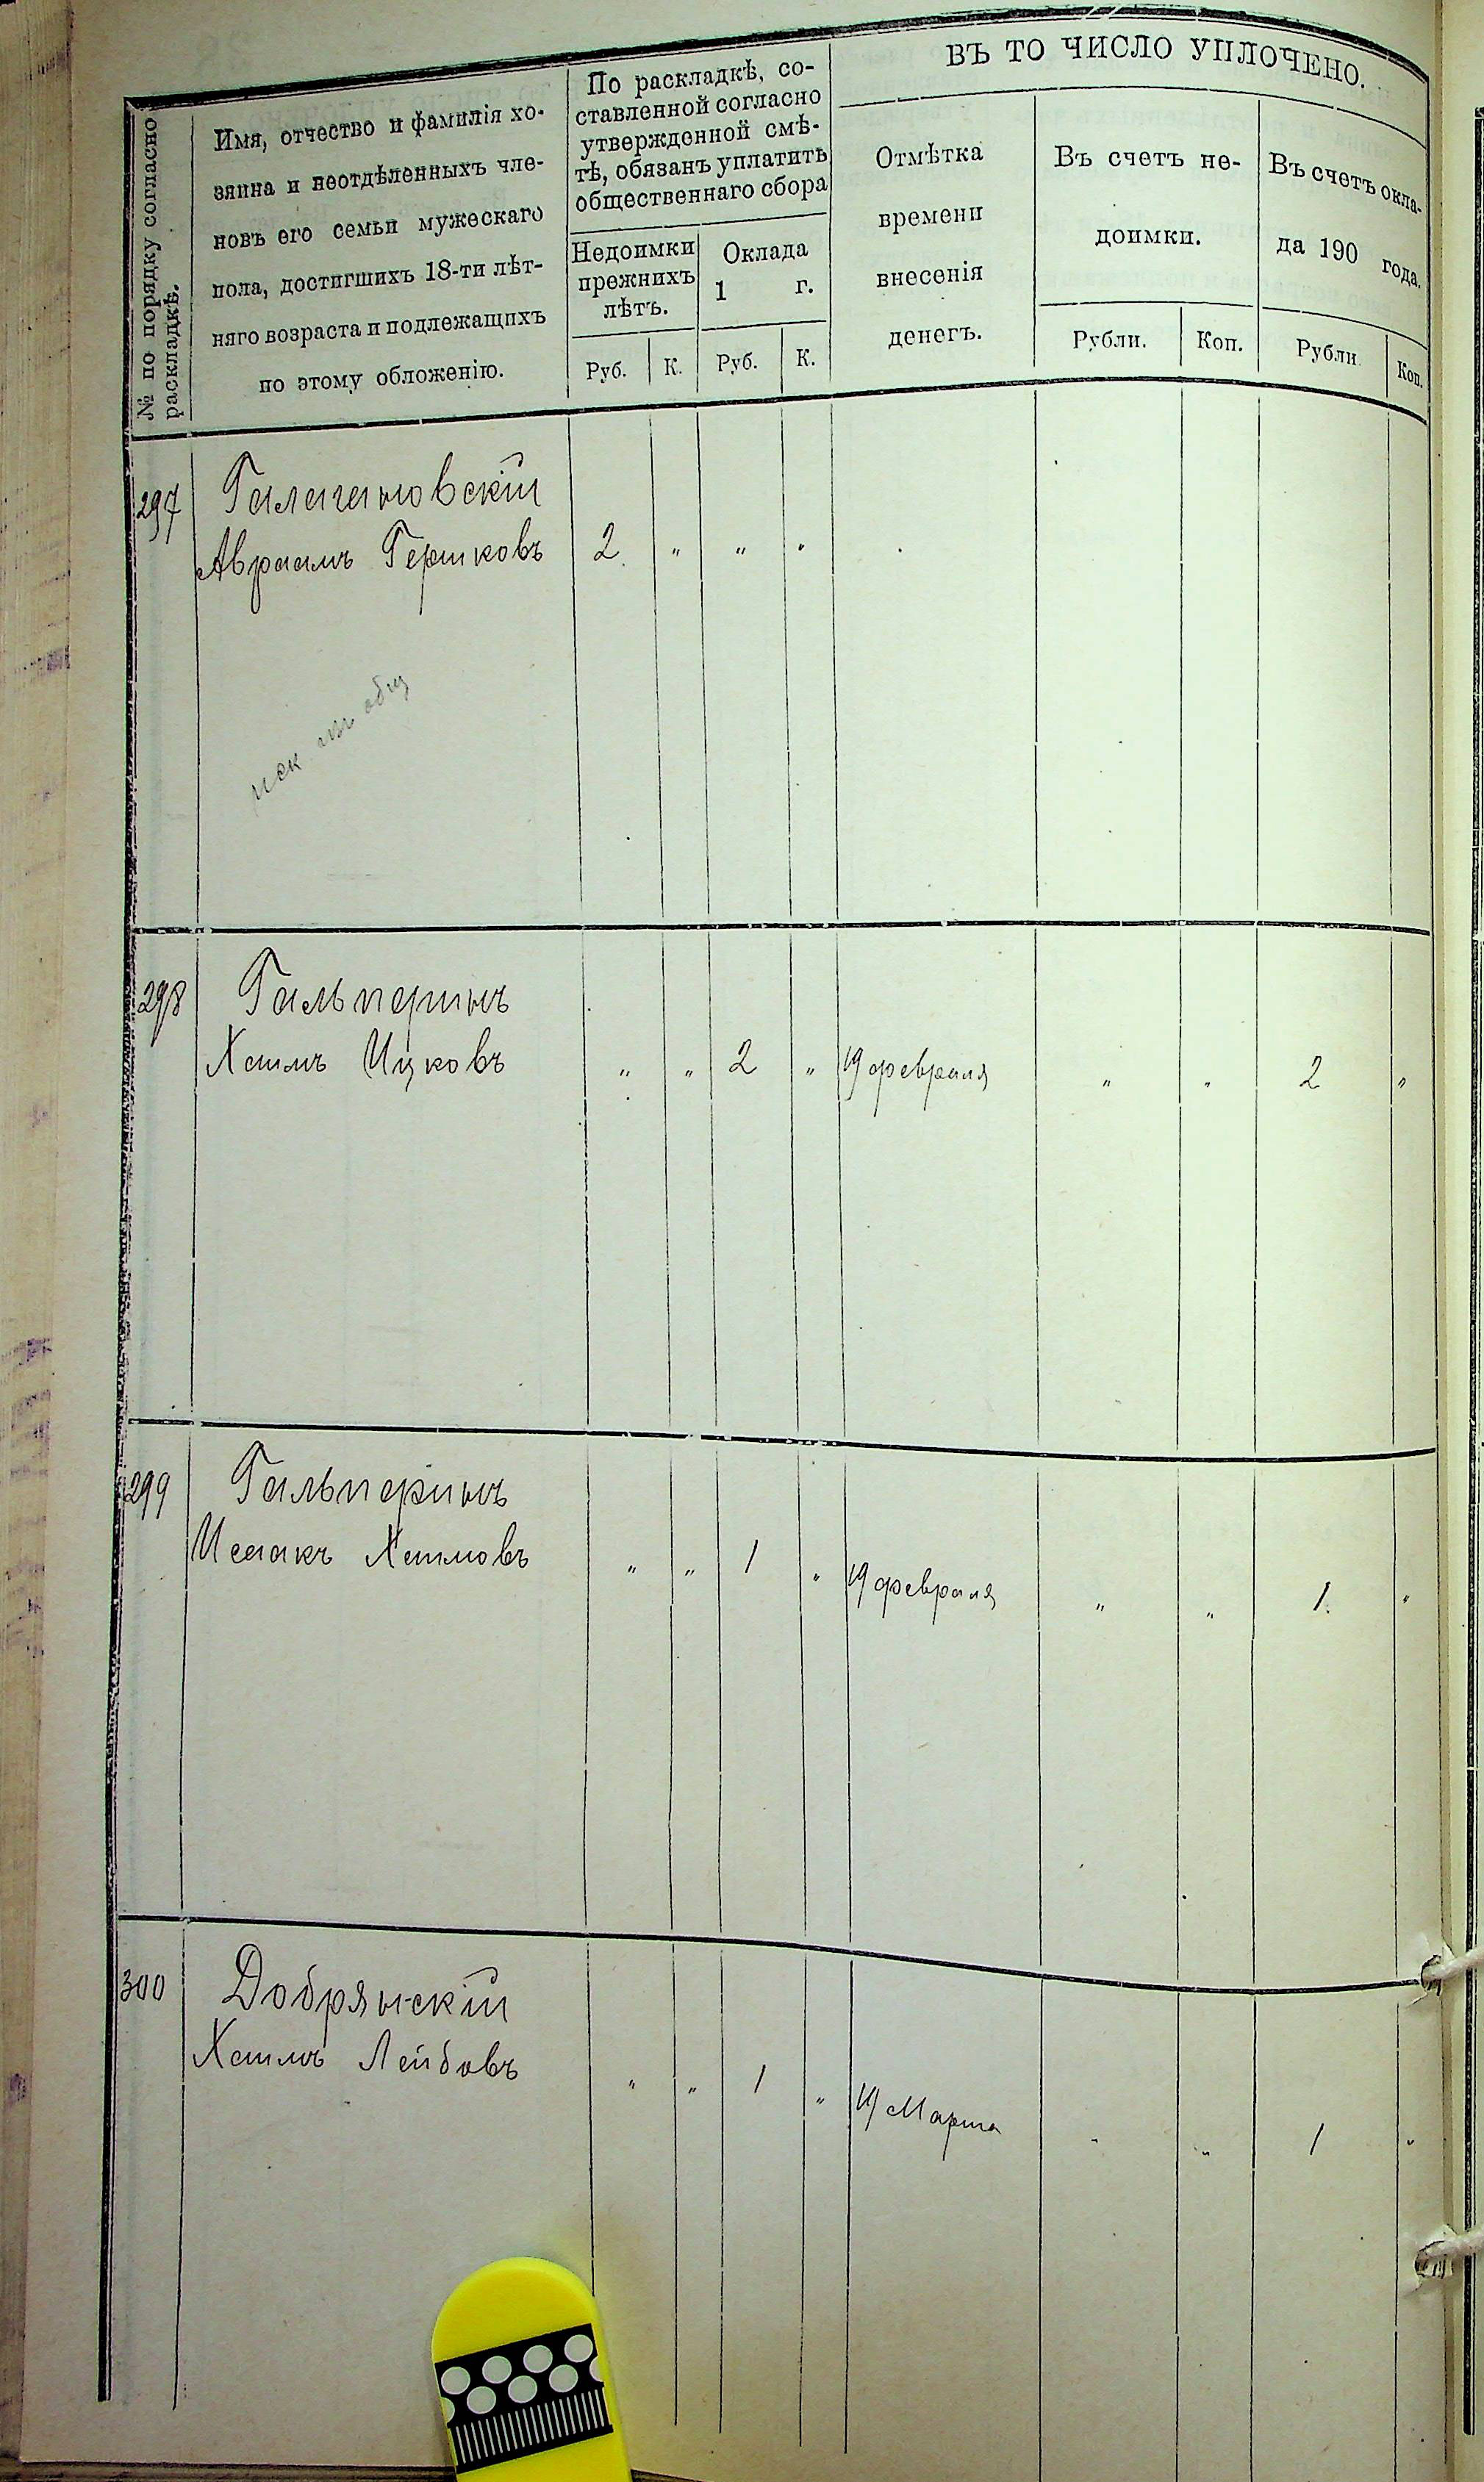 № по порядку согласно
раскладкѣ.
Имя, отчество и фамилія хо-
зяина и неотдѣленныхъ чле-
новъ его семьи мужескаго
пола, достигшихъ 18-ти лѣт-
няго возраста и подлежащихъ
по этому обложенію.
По раскладкѣ, со-
ставленной согласно
утвержденной смѣ-
тѣ, обязанъ уплатить
общественнаго сбора
Недоимки
прежнихъ
лѣтъ.
Оклада
1 г.
Руб. К. Руб. К.
ВЪ ТО ЧИСЛО УПЛОЧЕНО.
Отмѣтка
времени
внесенія
денегъ.
Въ счетъ не-
доимки.
Въ счетъ окла-
да 190 года.
Рубли. Коп. Рубли. Коп.
297 Галагановскій
Авраамъ Гершковъ 2 " " "
298 Гальперинъ
Хаимъ Ицковъ " " 2 " 19 февраля " " 2 "
299 Гальперинъ
Исаакъ Хаимовъ " " 1 " 19 февраля " " 1 "
300 Добрянскій
Хаимъ Лейбовъ " " 1 " 19 Марта " " 1 "